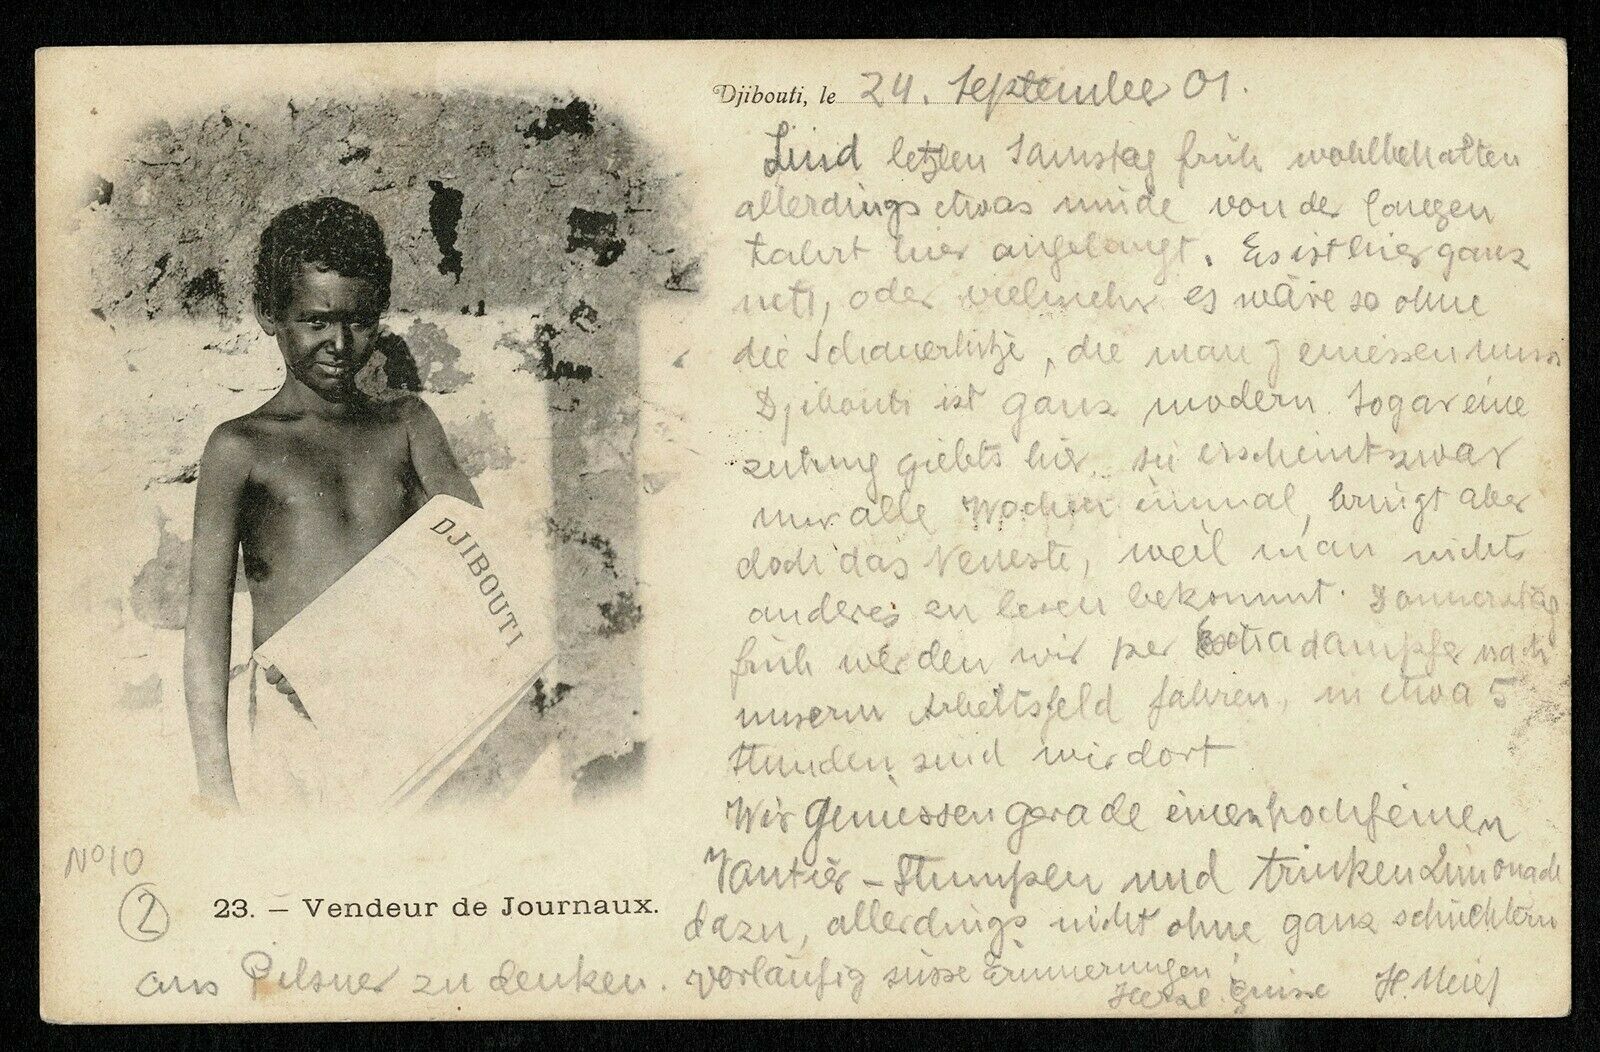 Djibouti, le 24. September 01.
Sind letzten Samstag früh wohlbehalten
allerdings etwas müde von der langen
Fahrt hier angelangt. Es ist hier ganz
nett, oder vielmehr es wäre so ohne
die Schauerhitze, die man geniessen muss
Djibouti ist ganz modern. Sogar eine
Zeitung giebts hier. sie erscheint zwar
nur alle Wochen einmal, bringt aber
doch das Neueste, weil man nichts
anderes zu lesen bekommt. Donnerstag
früh werden wir per Extradampfer nach
unserm Arbeitsfeld fahren, in etwa 5
Stunden sind wir dort
Wir geniessen gerade einen hochfeinen
Vautier-Stumpen und trinken Limonade
dazu, allerdings nicht ohne ganz schüchtern
ans Pilsner zu denken. vorläufig süsse Erinnerungen!
Herzl. Grüsse H. Meier
DJIBOUTI
No 10
2
23. — Vendeur de Journaux.